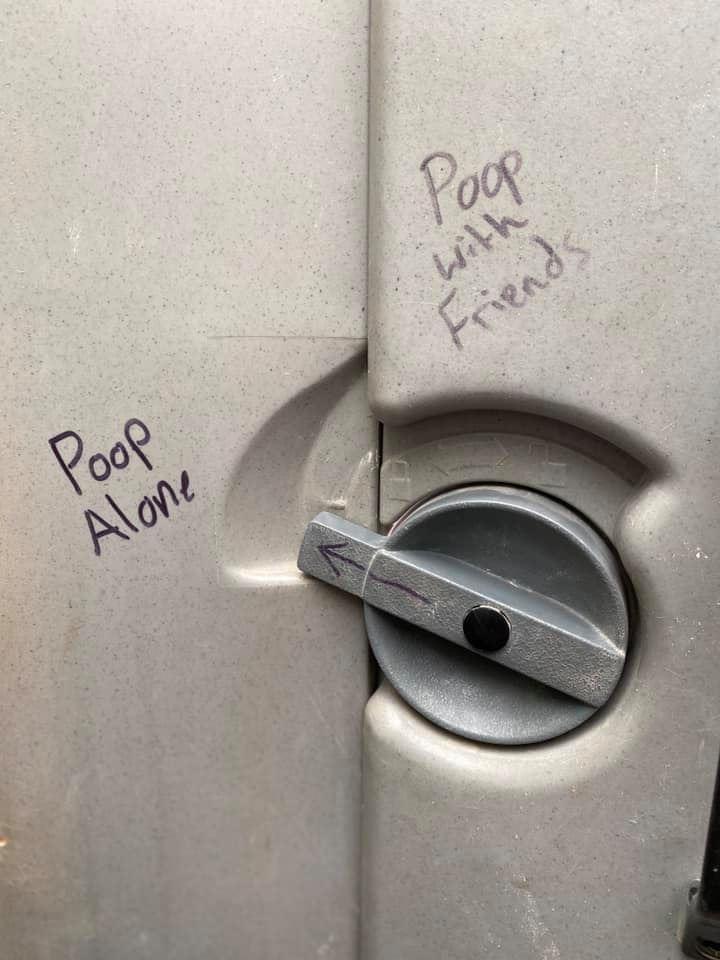 Poop
with
Friends
Poop
Alone